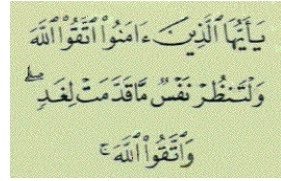 يَـٰٓأَيُّهَا ٱلَّذِينَ ءَامَنُوا۟ ٱتَّقُوا۟ ٱللَّهَ
وَلْتَنظُرْ نَفْسٌ مَّا قَدَّمَتْ لِغَدٍ ۖ
وَٱتَّقُوا۟ ٱللَّهَ ۚ